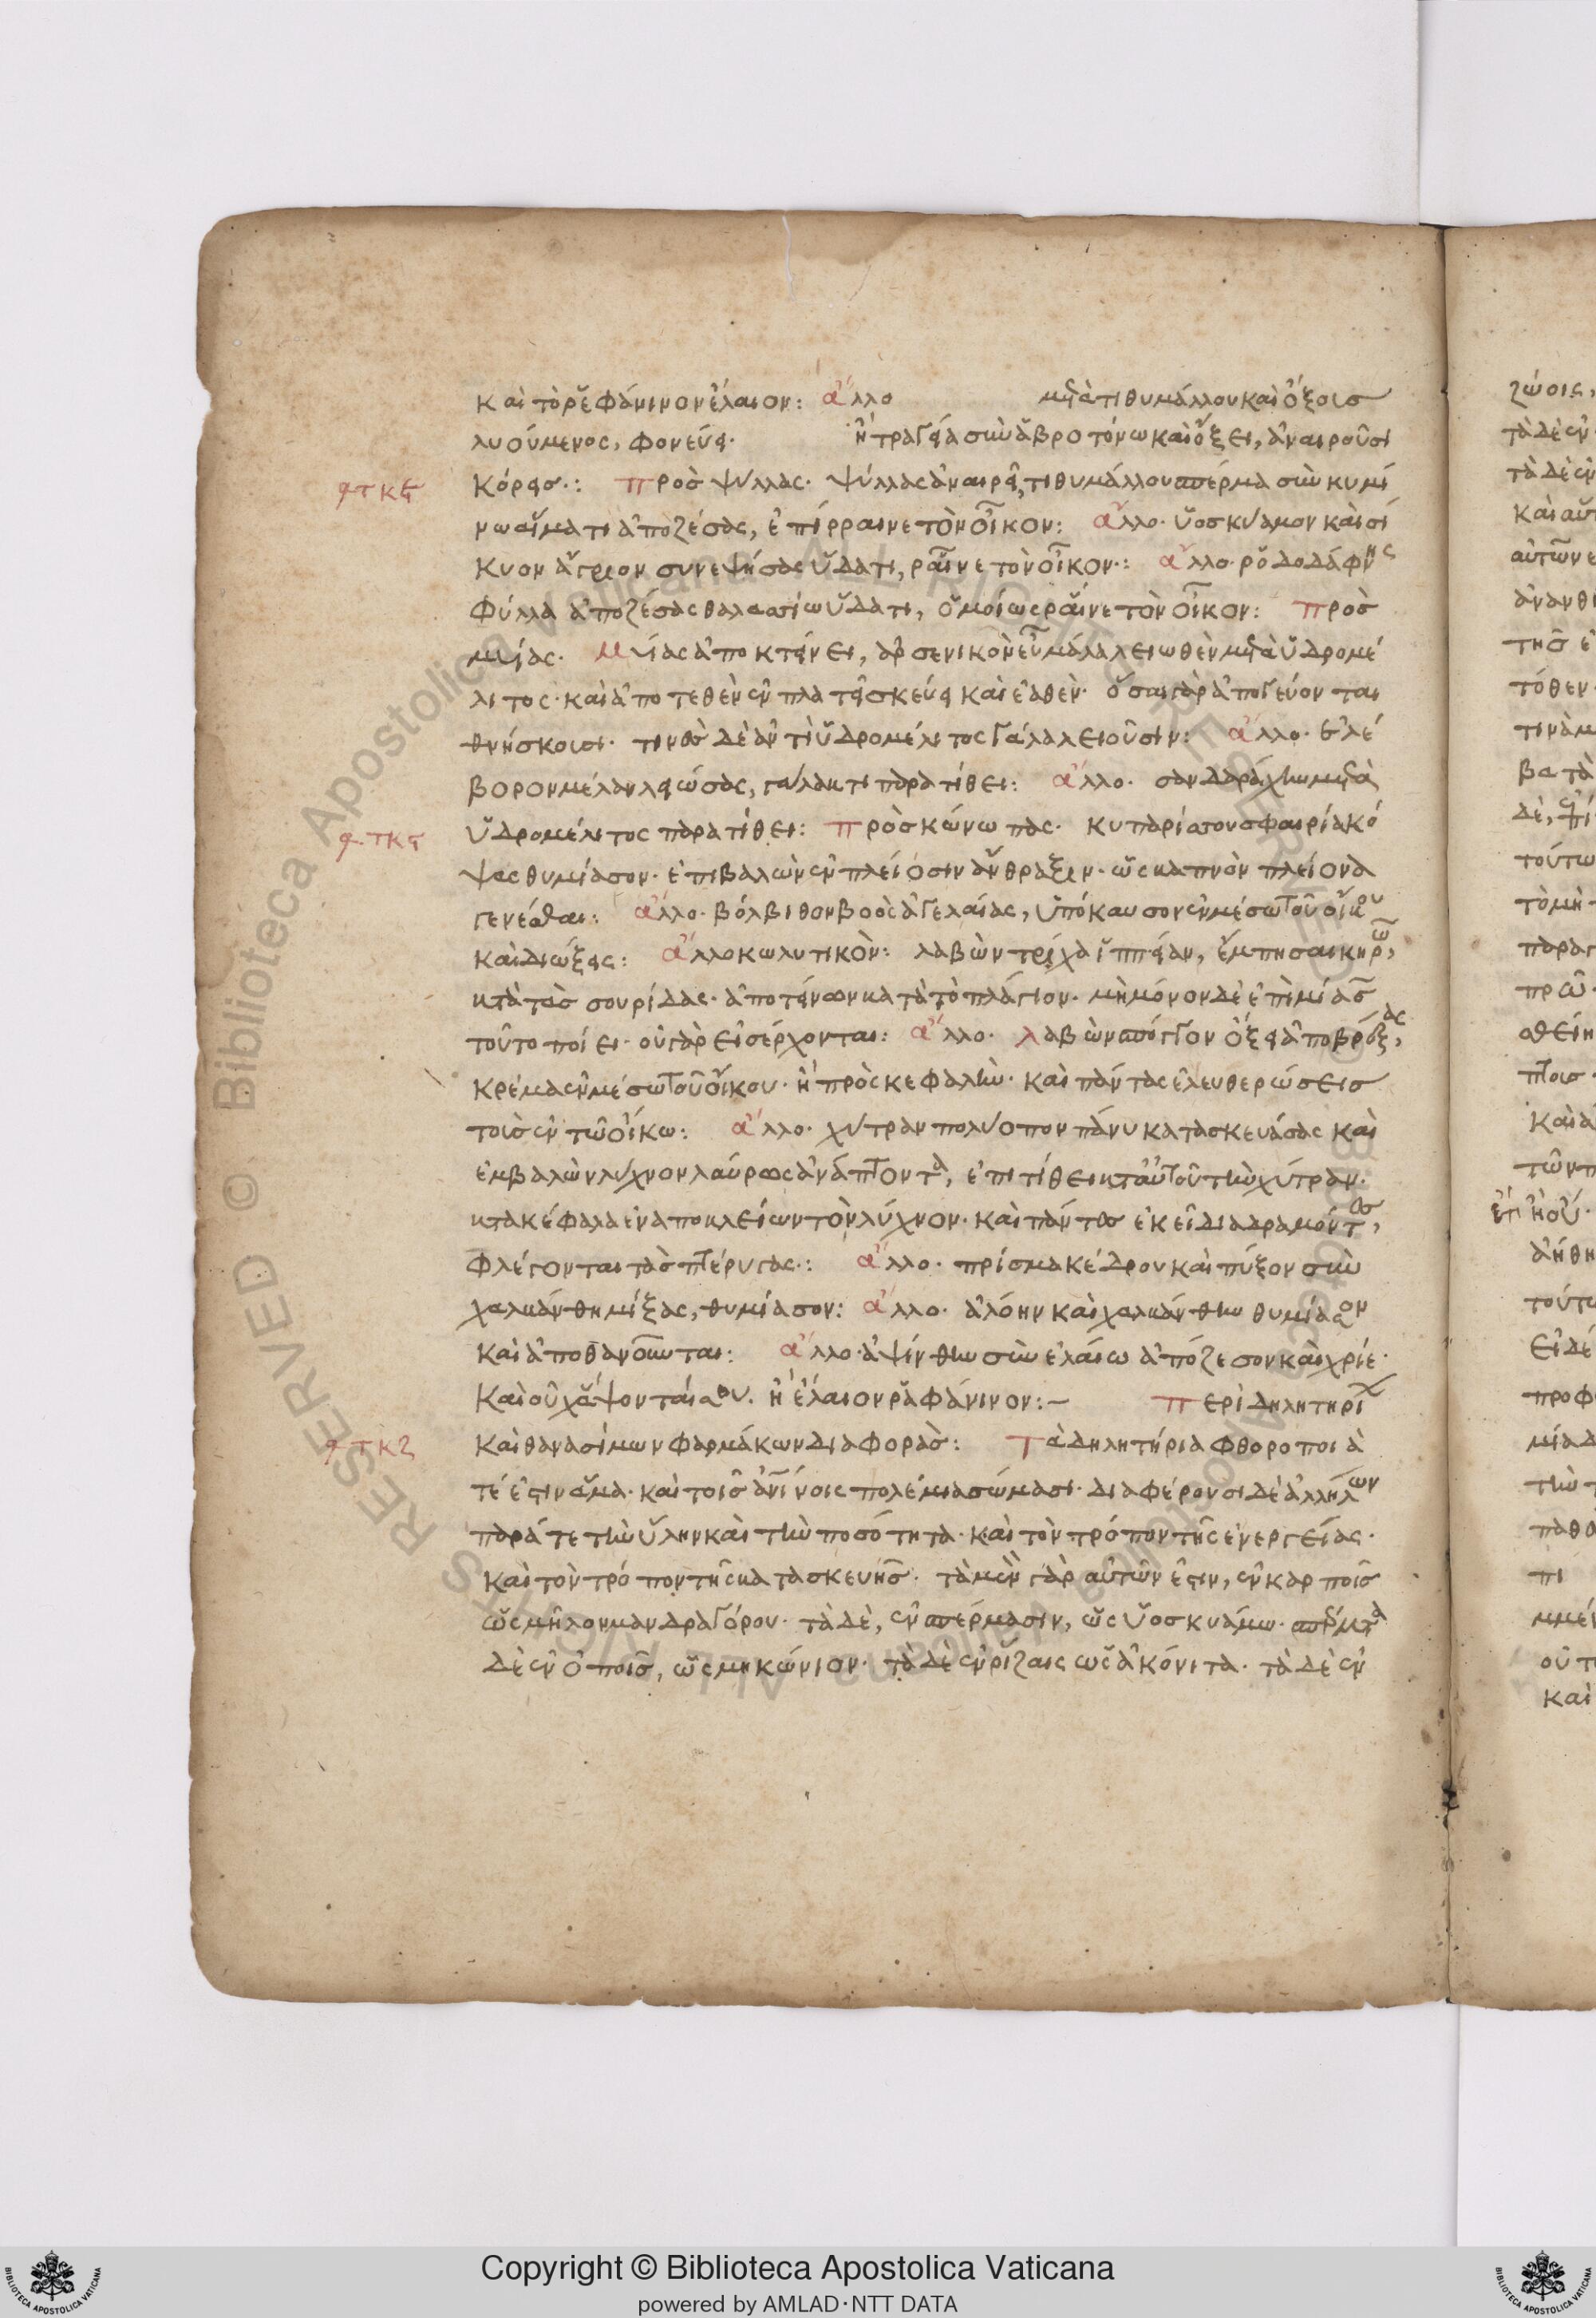 καὶ τὸ ῥεφάνινον ἔλαιον: ἄλλο μετὰ τιθυμάλλου καὶ ὄξοισ
λυούμενος, φονεύει· ἢ τραγεία σὺν ἀβροτόνω καὶ ὄξει, ἀναιροῦσι
κόρεισ·: πρὸσ ψύλλας· ψύλλας ἀναιρεῖ, τιθυμάλλου σπέρμα σὺν κυμί
νω αἵματι ἀποζέσας, ἐπίρραινε τὸν οἶκον: ἄλλο· ὑοσκύαμον καὶ σί
κυον ἄγριον συνεψήσας ὕδατι, ῥαῖνε τὸν οἶκον·: ἄλλο· ῥοδοδάφνης
φύλλα ἀποζέσας θαλασσίω ὕδατι, ὁμοίως ῥαῖνε τὸν οἶκον: πρὸσ
μυίας· μυίας ἀποκτένει, ἀρσενικὸν εὖ μάλα λειωθὲν μετὰ ὑδρομέ
λιτος· καὶ ἀποτεθὲν ἐν πλατεῖ σκεύει καὶ ἐαθὲν· ὅσαι γὰρ ἀπογεύονται
θνήσκουσι· τινὲσ δὲ ἀντὶ ὑδρομέλιτος γάλα λειοῦσιν: ἄλλο· ἐλέ
βορον μέλαν λειώσας, γάλακτι παρατίθει: ἄλλο· σανδαράχην μετὰ
ὑδρομέλιτος παρατίθει: πρὸσ κώνωπας· κυπαρίσσου σφαιρία κό
ψας θυμίασον· ἐπιβαλὼν ἐν πλείοσιν ἄνθραξιν· ὡς καπνὸν πλείονα
γενέσθαι: ἄλλο· βόλβιθον βοὸς ἀγελαίας, ὑπόκαυσον ἐν μέσω τοῦ οἴκου
καὶ διώξεις: ἄλλο κωλυτικὸν: λαβὼν τρίχα ἱππείαν, ἔμπησαι κηρῶ,
κατὰ τὰσ θυρίδας· ἀποτείνων κατὰ τὸ πλάγιον· μὴ μόνον δὲ ἐπὶ μιᾶσ
τοῦτο ποίει· οὐ γὰρ εἰσέρχονται: ἄλλο· λαβὼν σπόγγον ὄξει ἀποβρέξας,
κρέμα ἐν μέσω τοῦ οἴκου· ἢ πρὸς κεφαλὴν· καὶ πάντας ἐλευθερώσεισ
τοὶσ ἐν τῶ οἴκω: ἄλλο· χύτραν πολύοπον πάνυ κατασκευάσας καὶ
ἐμβαλὼν λύχνον λαύρως ἀνάπτοντα, ἐπιτίθει κατ' αὐτοῦ τὴν χύτραν·
κατακέφαλα ἐναποκλείων τὸν λύχνον· καὶ πάντεσ ἐκεῖ διαδραμόντεσ,
φλέγονται τὰσ πτέρυγας·: ἄλλο· πρίσμα κέδρου καὶ πύξον σὺν
χαλκάνθη μίξας, θυμίασον: ἄλλο· ἀλόην καὶ χαλκάνθην θυμίασον
καὶ ἀποθανοῦνται: ἄλλο· ἀψίνθιν σὺν ἐλαίω ἀπόζεσον καὶ χρίε·
καὶ οὐχ ἅψονταί σου. ἢ ἔλαιον ῥαφάνινον:— περὶ δηλητηρί
καὶ θανασίμων φαρμάκων διαφορὰσ: τὰ δηλητήρια φθοροποιὰ
τέ ἐστιν ἅμα· καὶ τοῖσ ἀνίνοις πολέμια σώμασι· διαφέρουσι δὲ ἀλλήλων
παρά τε τὴν ὕλην καὶ τὴν ποσότητα· καὶ τὸν τρόπον τῆς ἐνεργείας·
καὶ τὸν τρόπον τῆς κατασκευῆσ· τὰ μὲν γὰρ αὐτῶν ἐστιν, ἐν καρποῖσ
ὡς μῆλον μανδραγόρου· τὰ δὲ, ἐν σπέρμασιν, ὡς ὑοσκυάμω· σπέρματα
δὲ ἐν ὀποῖσ, ὡς μηκώνιον· τὰ δὲ ἐν ῥίζαις ὡς ἀκόνιτα· τὰ δὲ ἐν
Copyright © Biblioteca Apostolica Vaticana
powered by AMLAD·NTT DATA